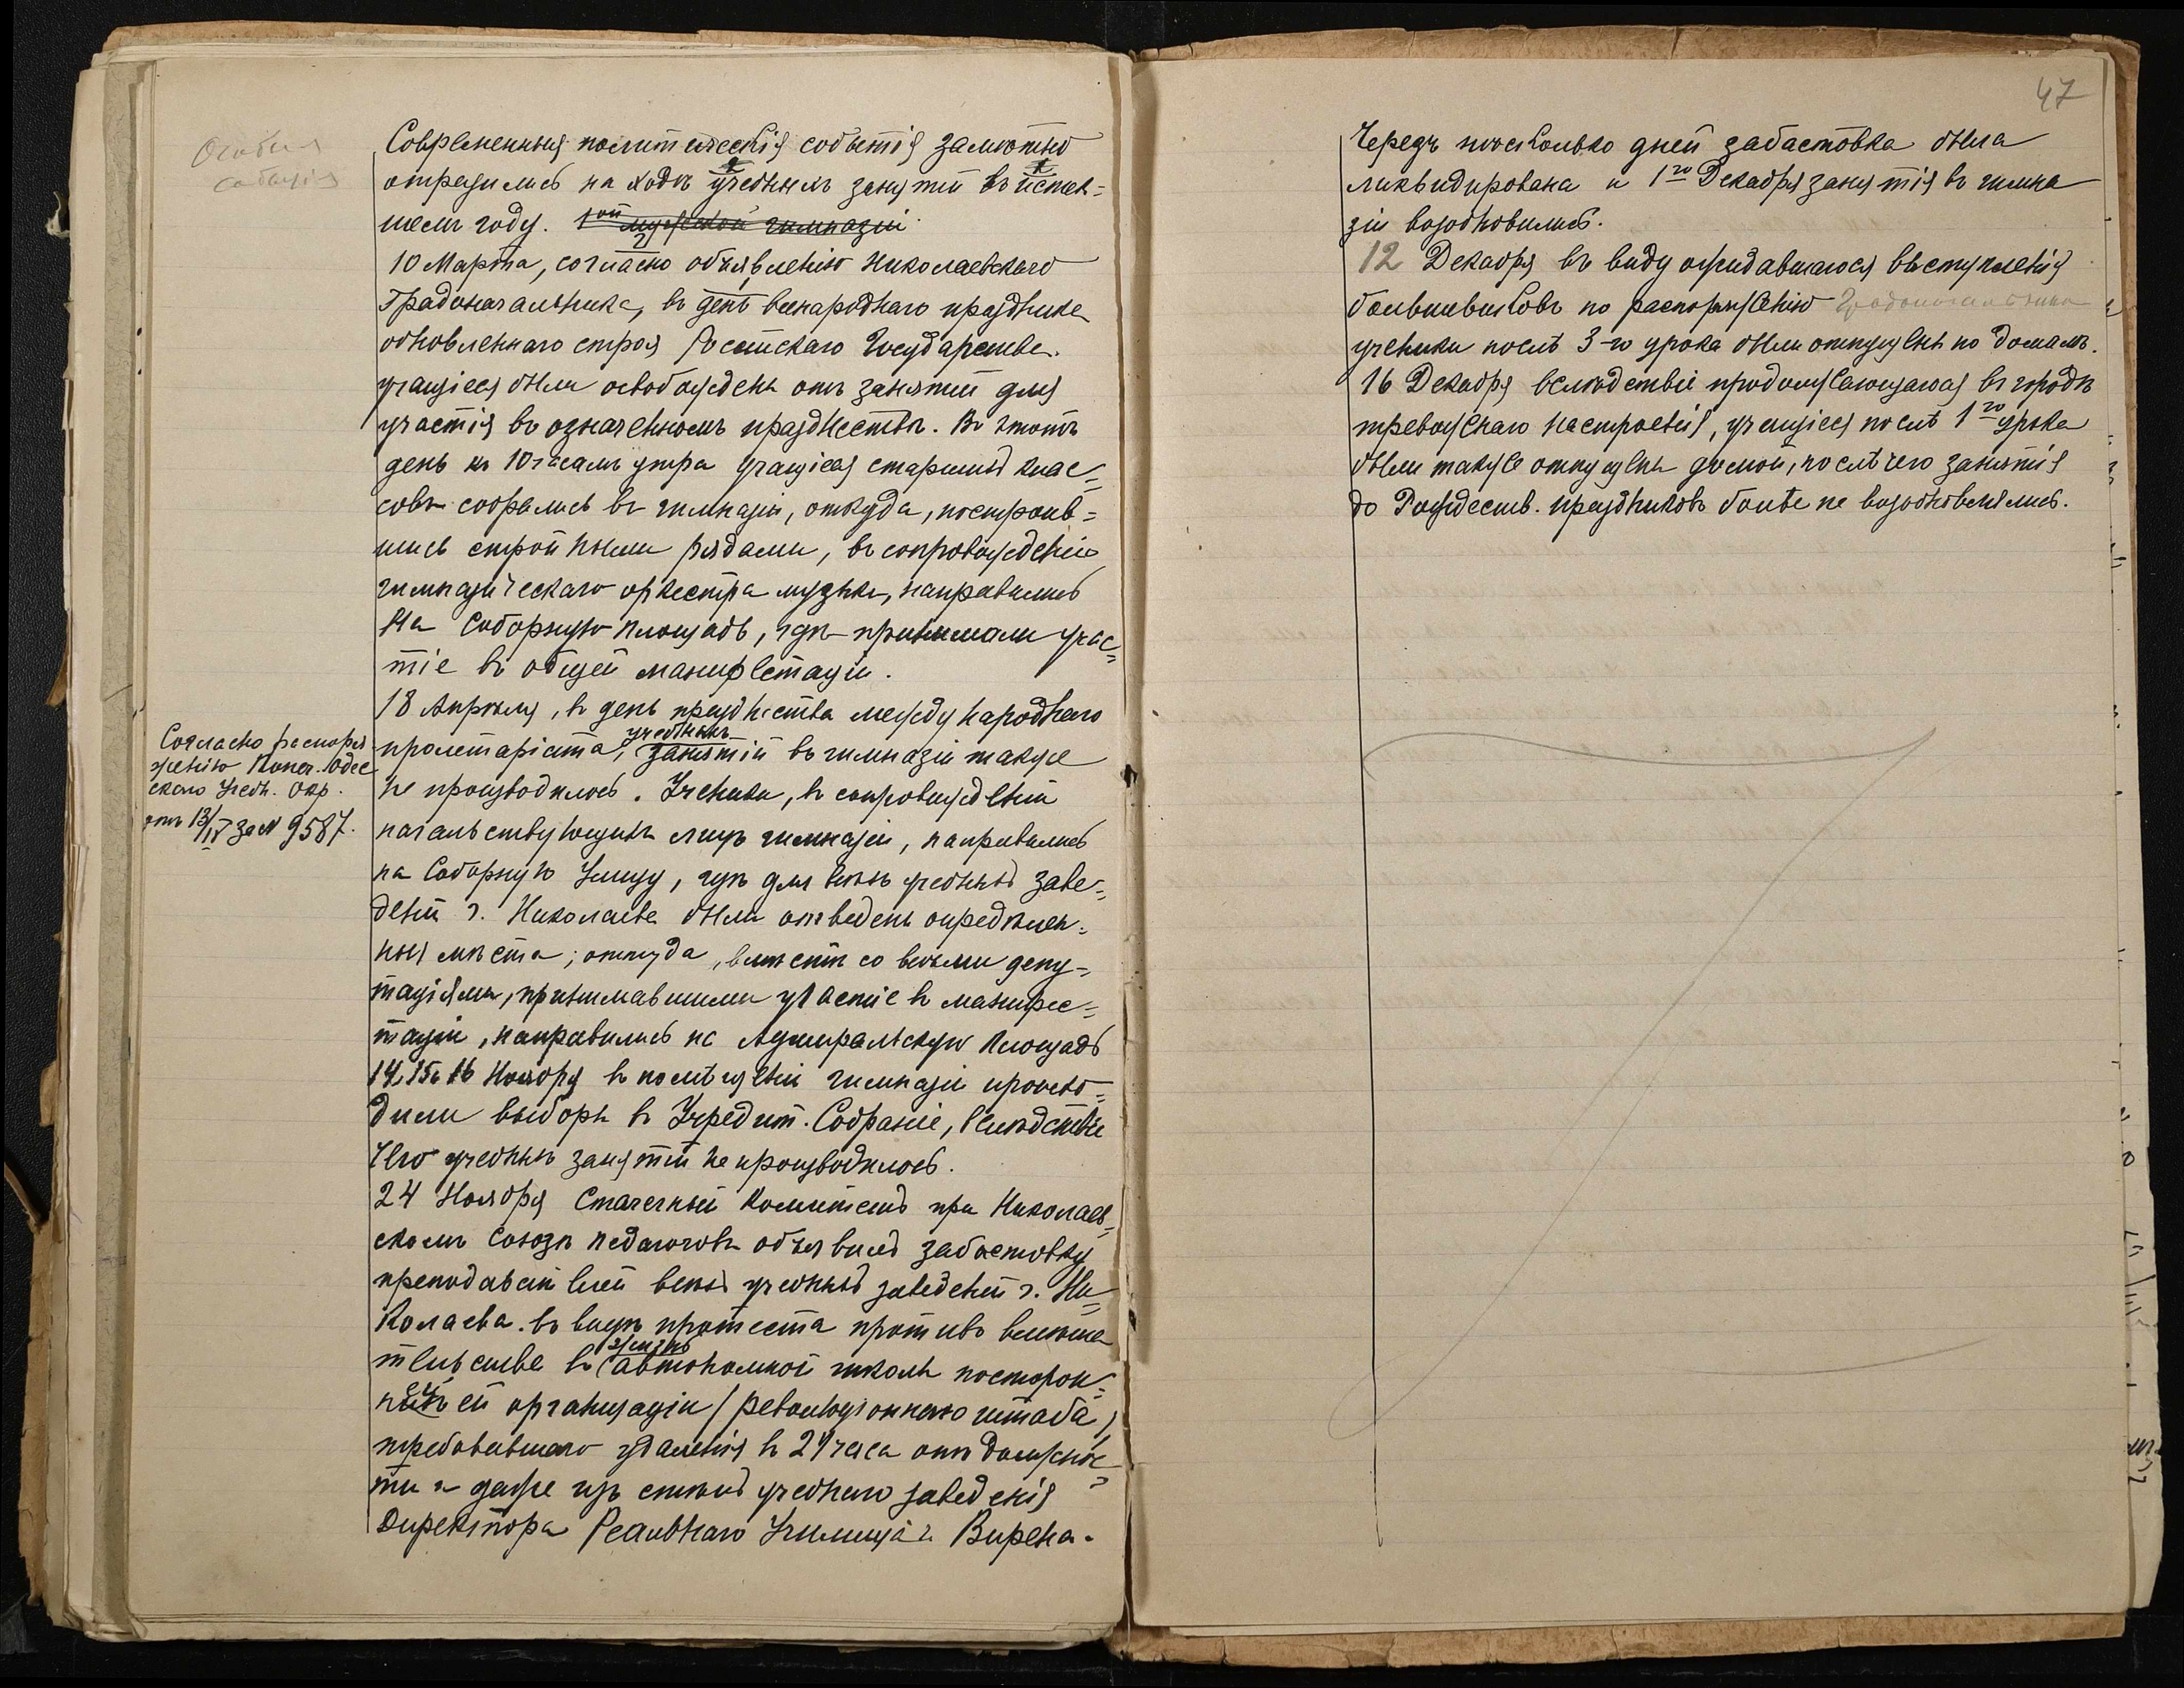 Особыя
событія
Современныя политическія событія замѣтно
отразились на ходѣ учебныхъ занятій въ истек=
шемъ году. 1ой мужской гимназіи
10 Марта, согласно объявленію Николаевскаго
Градоначальника, въ день всенароднаго праздника
обновленнаго строя Россійскаго Государства.
учащіеся были освобождены отъ занятій для
участія въ означенномъ празднествѣ. Въ этотъ
день къ 10 часамъ утра учащіеся старшихъ клас=
совъ собрались въ гимназіи, откуда, построив=
шись стройными рядами, въ сопровожденіи
гимназическаго оркестра музыки, направились
На Соборную площадь, гдѣ принимали учас=
тіе въ общей манифестаціи.
18 Апрѣля, въ день празднества международнаго
пролетаріата, учебныхъ занятій въ гимназіи также
не производилось. Ученики, въ сопровожденіи
начальствующихъ лицъ гимназіи, направились
на Соборную Улицу, гдѣ для всѣхъ учебныхъ заве=
деній г. Николаева были отведены опредѣлен=
ныя мѣста; откуда, вмѣстѣ со всѣми депу=
таціями, принимавшими участіе въ манифес=
таціи, направились на Адмиральскую Площадь
14, 15 и 16 Ноября въ помѣщеніи гимназіи происхо=
дили выборы въ Учредит. Собраніе, вслѣдствіе
чего учебныхъ занятій не производилось.
24 Ноября Стачечный Комитетъ при Николаев=
скомъ Союзѣ педагоговъ объявилъ забастовку
преподавателей всѣхъ учебныхъ заведеній г. Ни=
колаева. въ видѣ протеста противъ вмѣша
тельства въ жизнь автономной школы посторон=
ней организаціи (революціоннаго штаба,)
требовавшаго удаленія въ 24 часа отъ должнос=
ти и даже изъ стѣнъ учебнаго заведенія
Директора Реальнаго Училища г. Вирена.
Согласно распоря
женію Попеч. Одес
скаго Учебн. Окр.
отъ 13/IV за № 9587.
47
Черезъ нѣсколько дней забастовка была
ликвидирована и 1го Декабря занятія въ гимна
зіи возобновились.
12 Декабря въ виду ожидавшагося выступленія
большевиковъ по распоряженію Градоначальника
ученики послѣ 3-го урока были отпущены по домамъ.
16 Декабря вслѣдствіе продолжающагося въ городѣ
тревожнаго настроенія, учащіеся послѣ 1го урока
были также отпущены домой, послѣ чего занятія
до Рождеств. праздниковъ болѣе не возобновлялись.